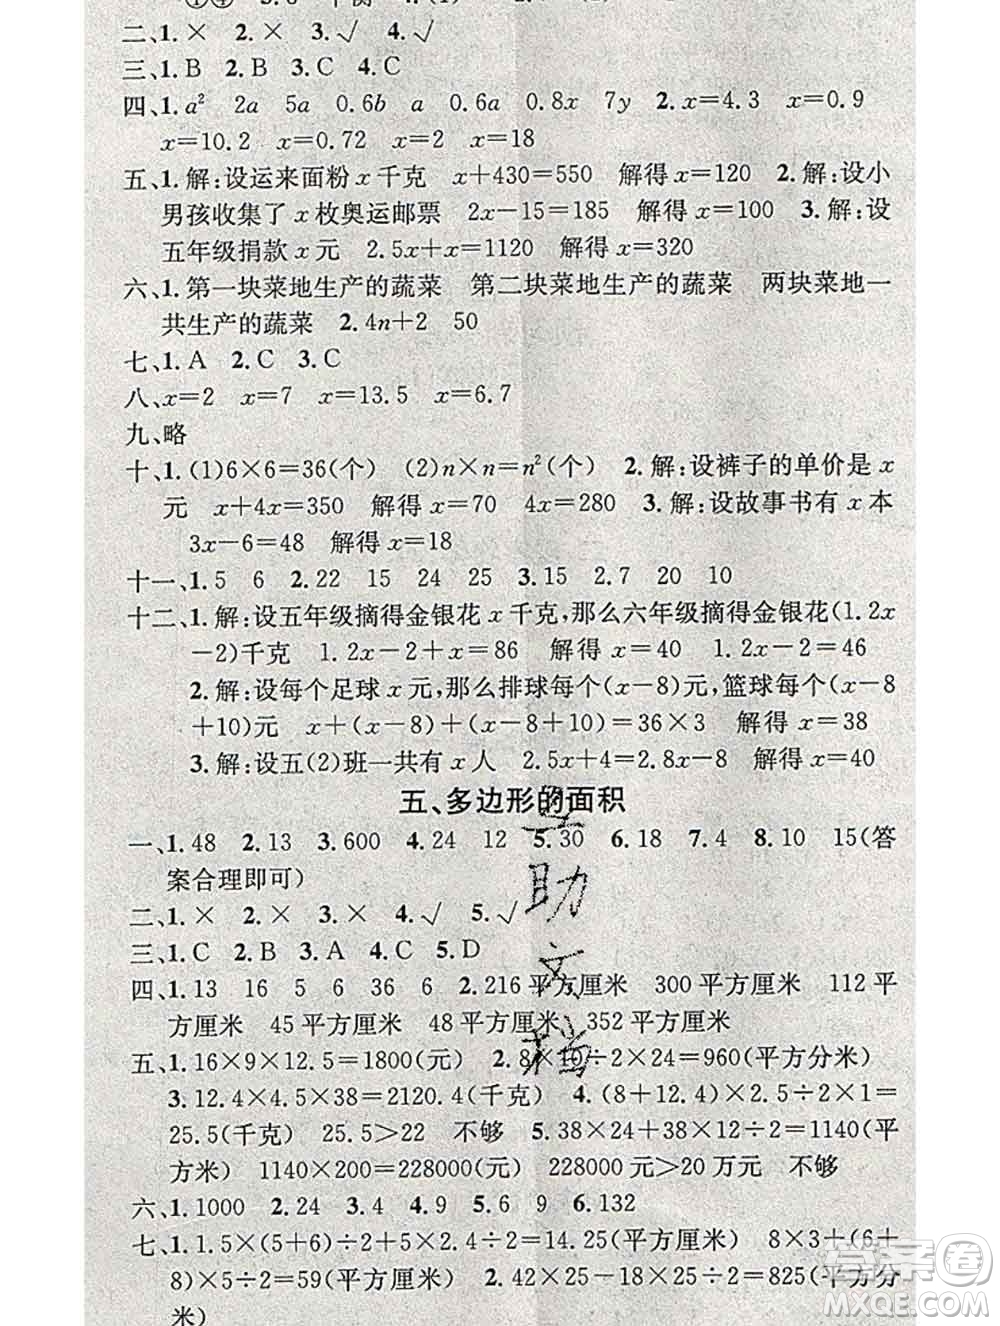 二、1.× 2.× 3.√ 4.√
三、1.B 2.B 3.C 4.C
四、1.a² 2a 5a 0.6b a 0.6a 0.8x 7y 2.x=4.3 x=0.9
x=10.2 x=0.72 x=2 x=18
五、1.解:设运来面粉 x 千克 x+430=550 解得 x=120 2.解:设小
男孩收集了 x 枚奥运邮票 2x-15=185 解得 x=100 3.解:设
五年级捐款 x 元 2.5x+x=1120 解得 x=320
六、1.第一块菜地生产的蔬菜 第二块菜地生产的蔬菜 两块菜地一
共生产的蔬菜 2.4n+2 50
七、1.A 2.C 3.C
八、x=2 x=7 x=13.5 x=6.7
九、略
十、1.(1)6×6=36(个) (2)n×n=n²(个) 2.解:设裤子的单价是 x
元 x+4x=350 解得 x=70 4x=280 3.解:设故事书有 x 本
3x-6=48 解得 x=18
十一、1.5 6 2.22 15 24 25 3.15 2.7 20 10
十二、1.解:设五年级摘得金银花 x 千克,那么六年级摘得金银花(1.2x
-2)千克 1.2x-2+x=86 解得 x=40 1.2x-2=46
2.解:设每个足球 x 元,那么排球每个(x-8)元,篮球每个(x-8
+10)元 x+(x-8)+(x-8+10)=36×3 解得 x=38
3.解:设五(2)班一共有 x 人 2.5x+4=2.8x-8 解得 x=40
五、多边形的面积
一、1.48 2.13 3.600 4.24 12 5.30 6.18 7.4 8.10 15(答
案合理即可)
二、1.× 2.× 3.× 4.√ 5.√
三、1.C 2.B 3.A 4.C 5.D
四、1.13 16 5 6 36 6 2.216 平方厘米 300 平方厘米 112 平
方厘米 45 平方厘米 48 平方厘米 352 平方厘米
五、1.16×9×12.5=1800(元) 2.8×10÷2×24=960(平方分米)
3.12.4×4.5×38=2120.4(千克) 4.(8+12.4)×2.5÷2×1=
25.5(千克) 25.5>22 不够 5.38×24+38×12÷2=1140(平
方米) 1140×200=228000(元) 228000元>20万元 不够
六、1.1000 2.24 3.4 4.9 5.6 9 6.132
七、1.1.5×(5+6)÷2+5×2.4÷2=14.25(平方米) 8×3+(6+
8)×5÷2=59(平方厘米) 2.42×25-18×25÷2=825(平方分
米)
互助文档
答案圈
MXQE.COM